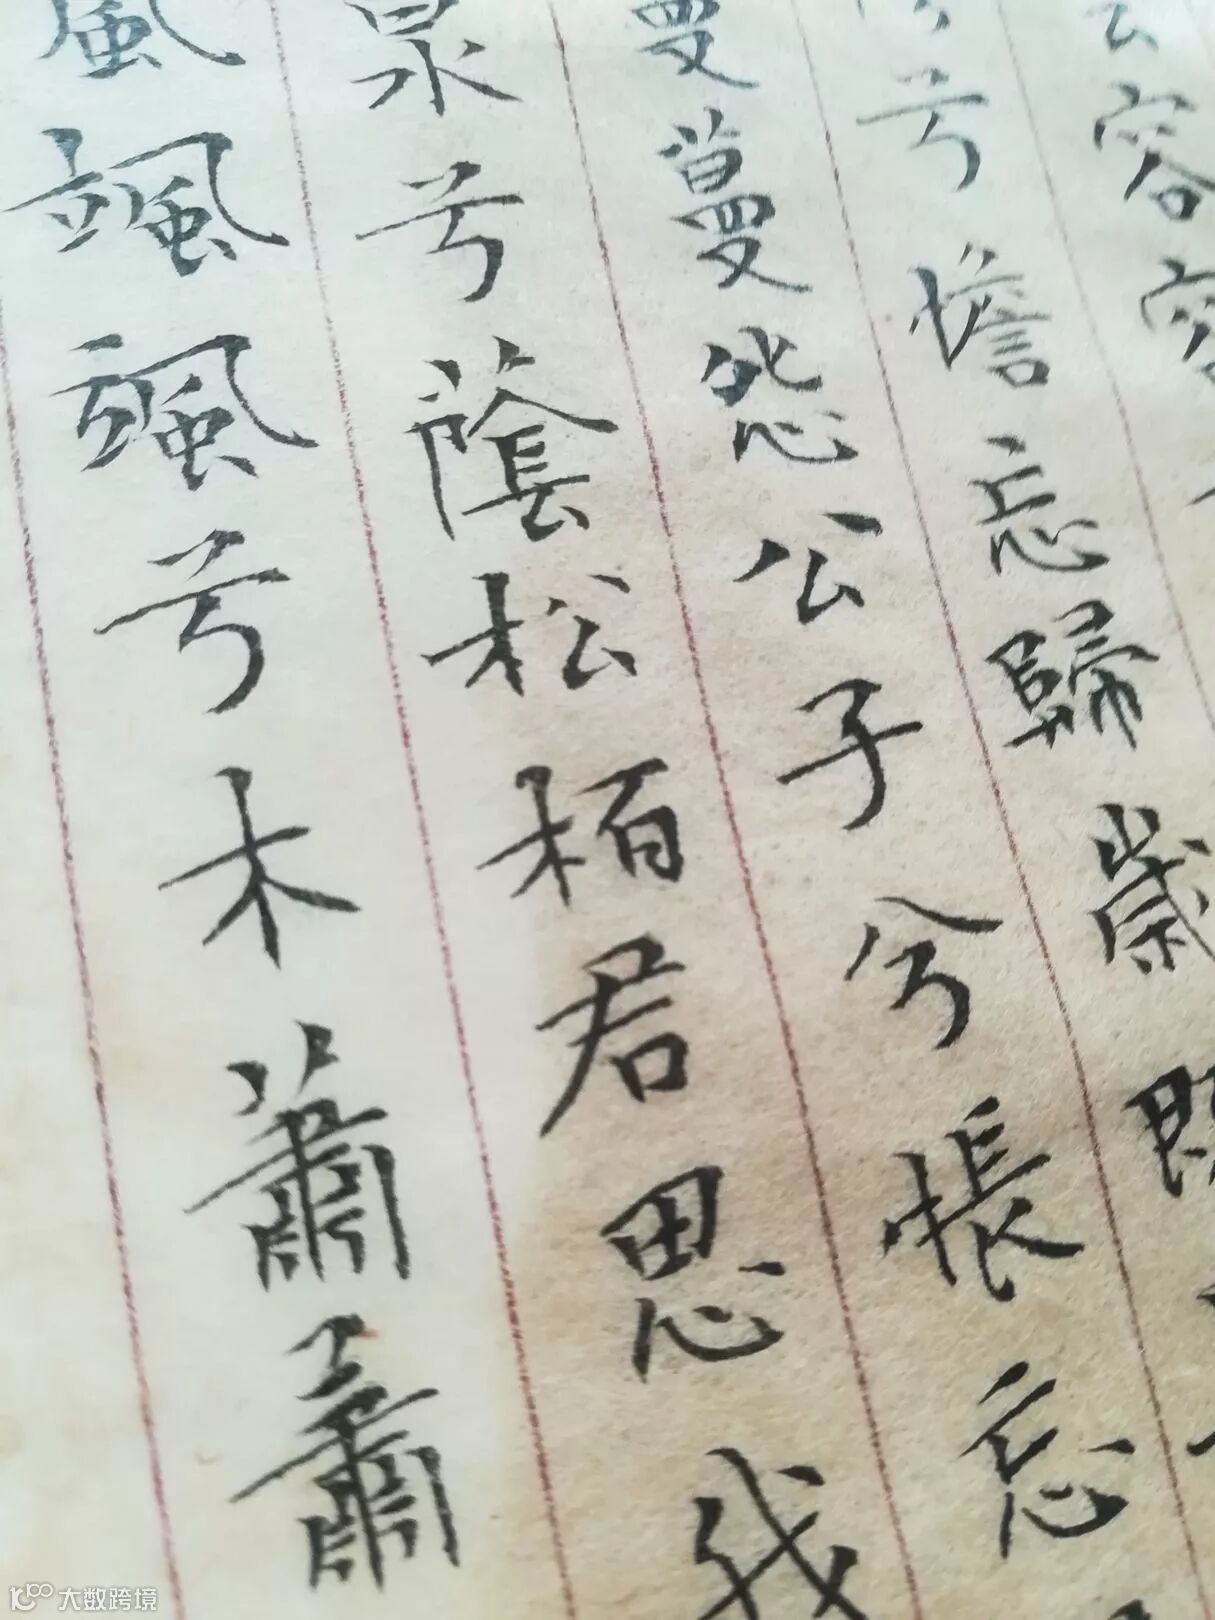 云容容
兮憺忘歸歲既
蔓蔓怨公子兮悵忘
泉兮蔭松栢君思我
風颯颯兮木蕭蕭
大数跨境